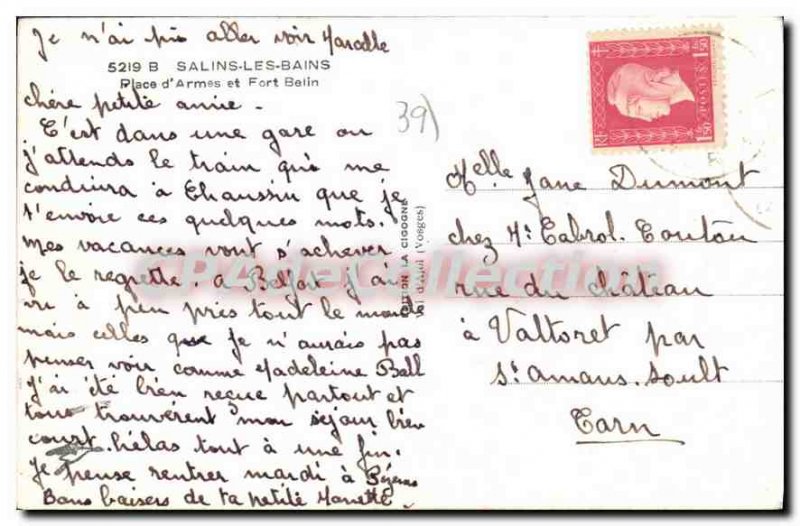 Je n'ai pu aller voir Marcelle
5219 B SALINS-LES-BAINS
Place d'Armes et Fort Belin
chère petite amie -
C'est dans une gare ou
j'attends le train qui me
conduira à Chaussin que je
t'envoie ces quelques mots.
Mes vacances vont s'achever
je le regrette. à Belfort j'ai
vu à peu près tout le monde
mais celles que je n'aurais pas
penser voir comme Madeleine Ball
J'ai été bien reçue partout et
tous trouvèrent mon séjour bien
court. hélas tout à une fin.
Je pense rentrer mardi à Pézenas
Bons baisers de ta petite
39)
EDITION LA CIGOGNE
Val d'Ajol (Vosges)
RF
POSTES
1F50
1F50
Melle Jane Dumont
chez Mr Cabrol. Coutou
rue du château
à Valtoret par
St amans. soult
Tarn
CPAdeCollection